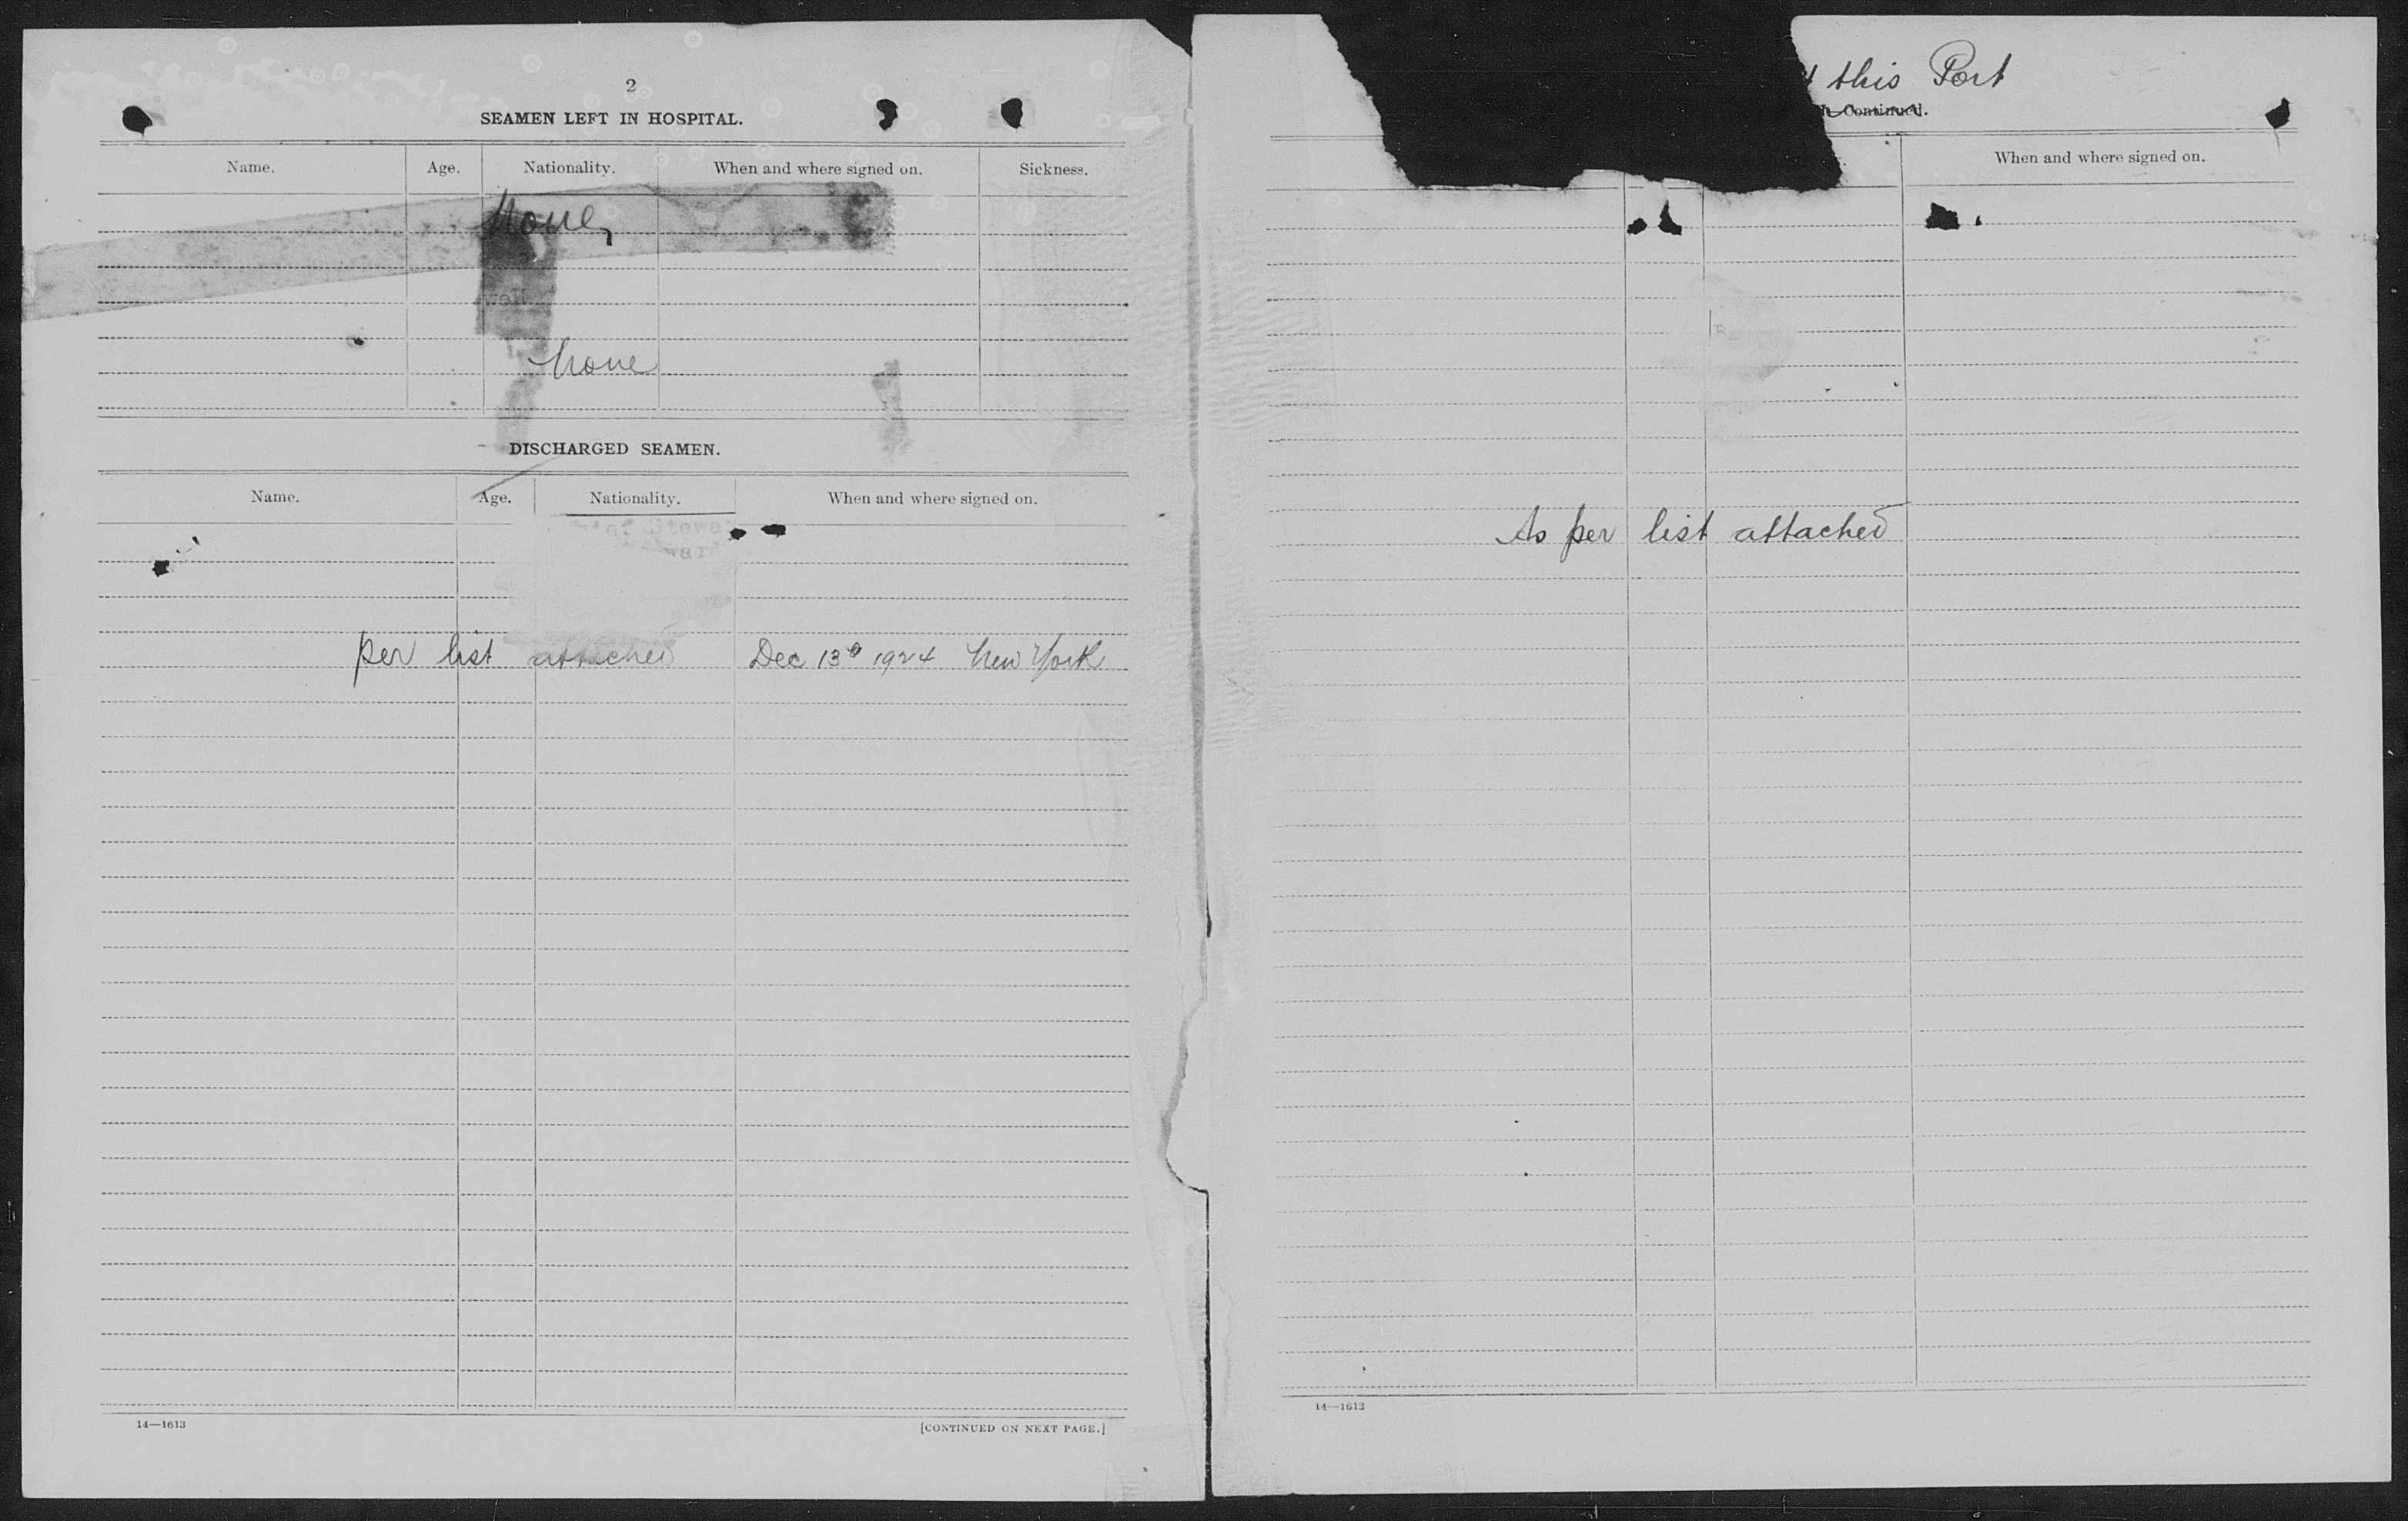 2
SEAMEN LEFT IN HOSPITAL.
Name. Age. Nationality. When and where signed on. Sickness.
None,
None
DISCHARGED SEAMEN.
Name. Age. Nationality. When and where signed on.
per list attached Dec 13th 1924 New York
14—1613 [CONTINUED ON NEXT PAGE.]
this Port
Continued.
When and where signed on.
As per list attached
14—1613